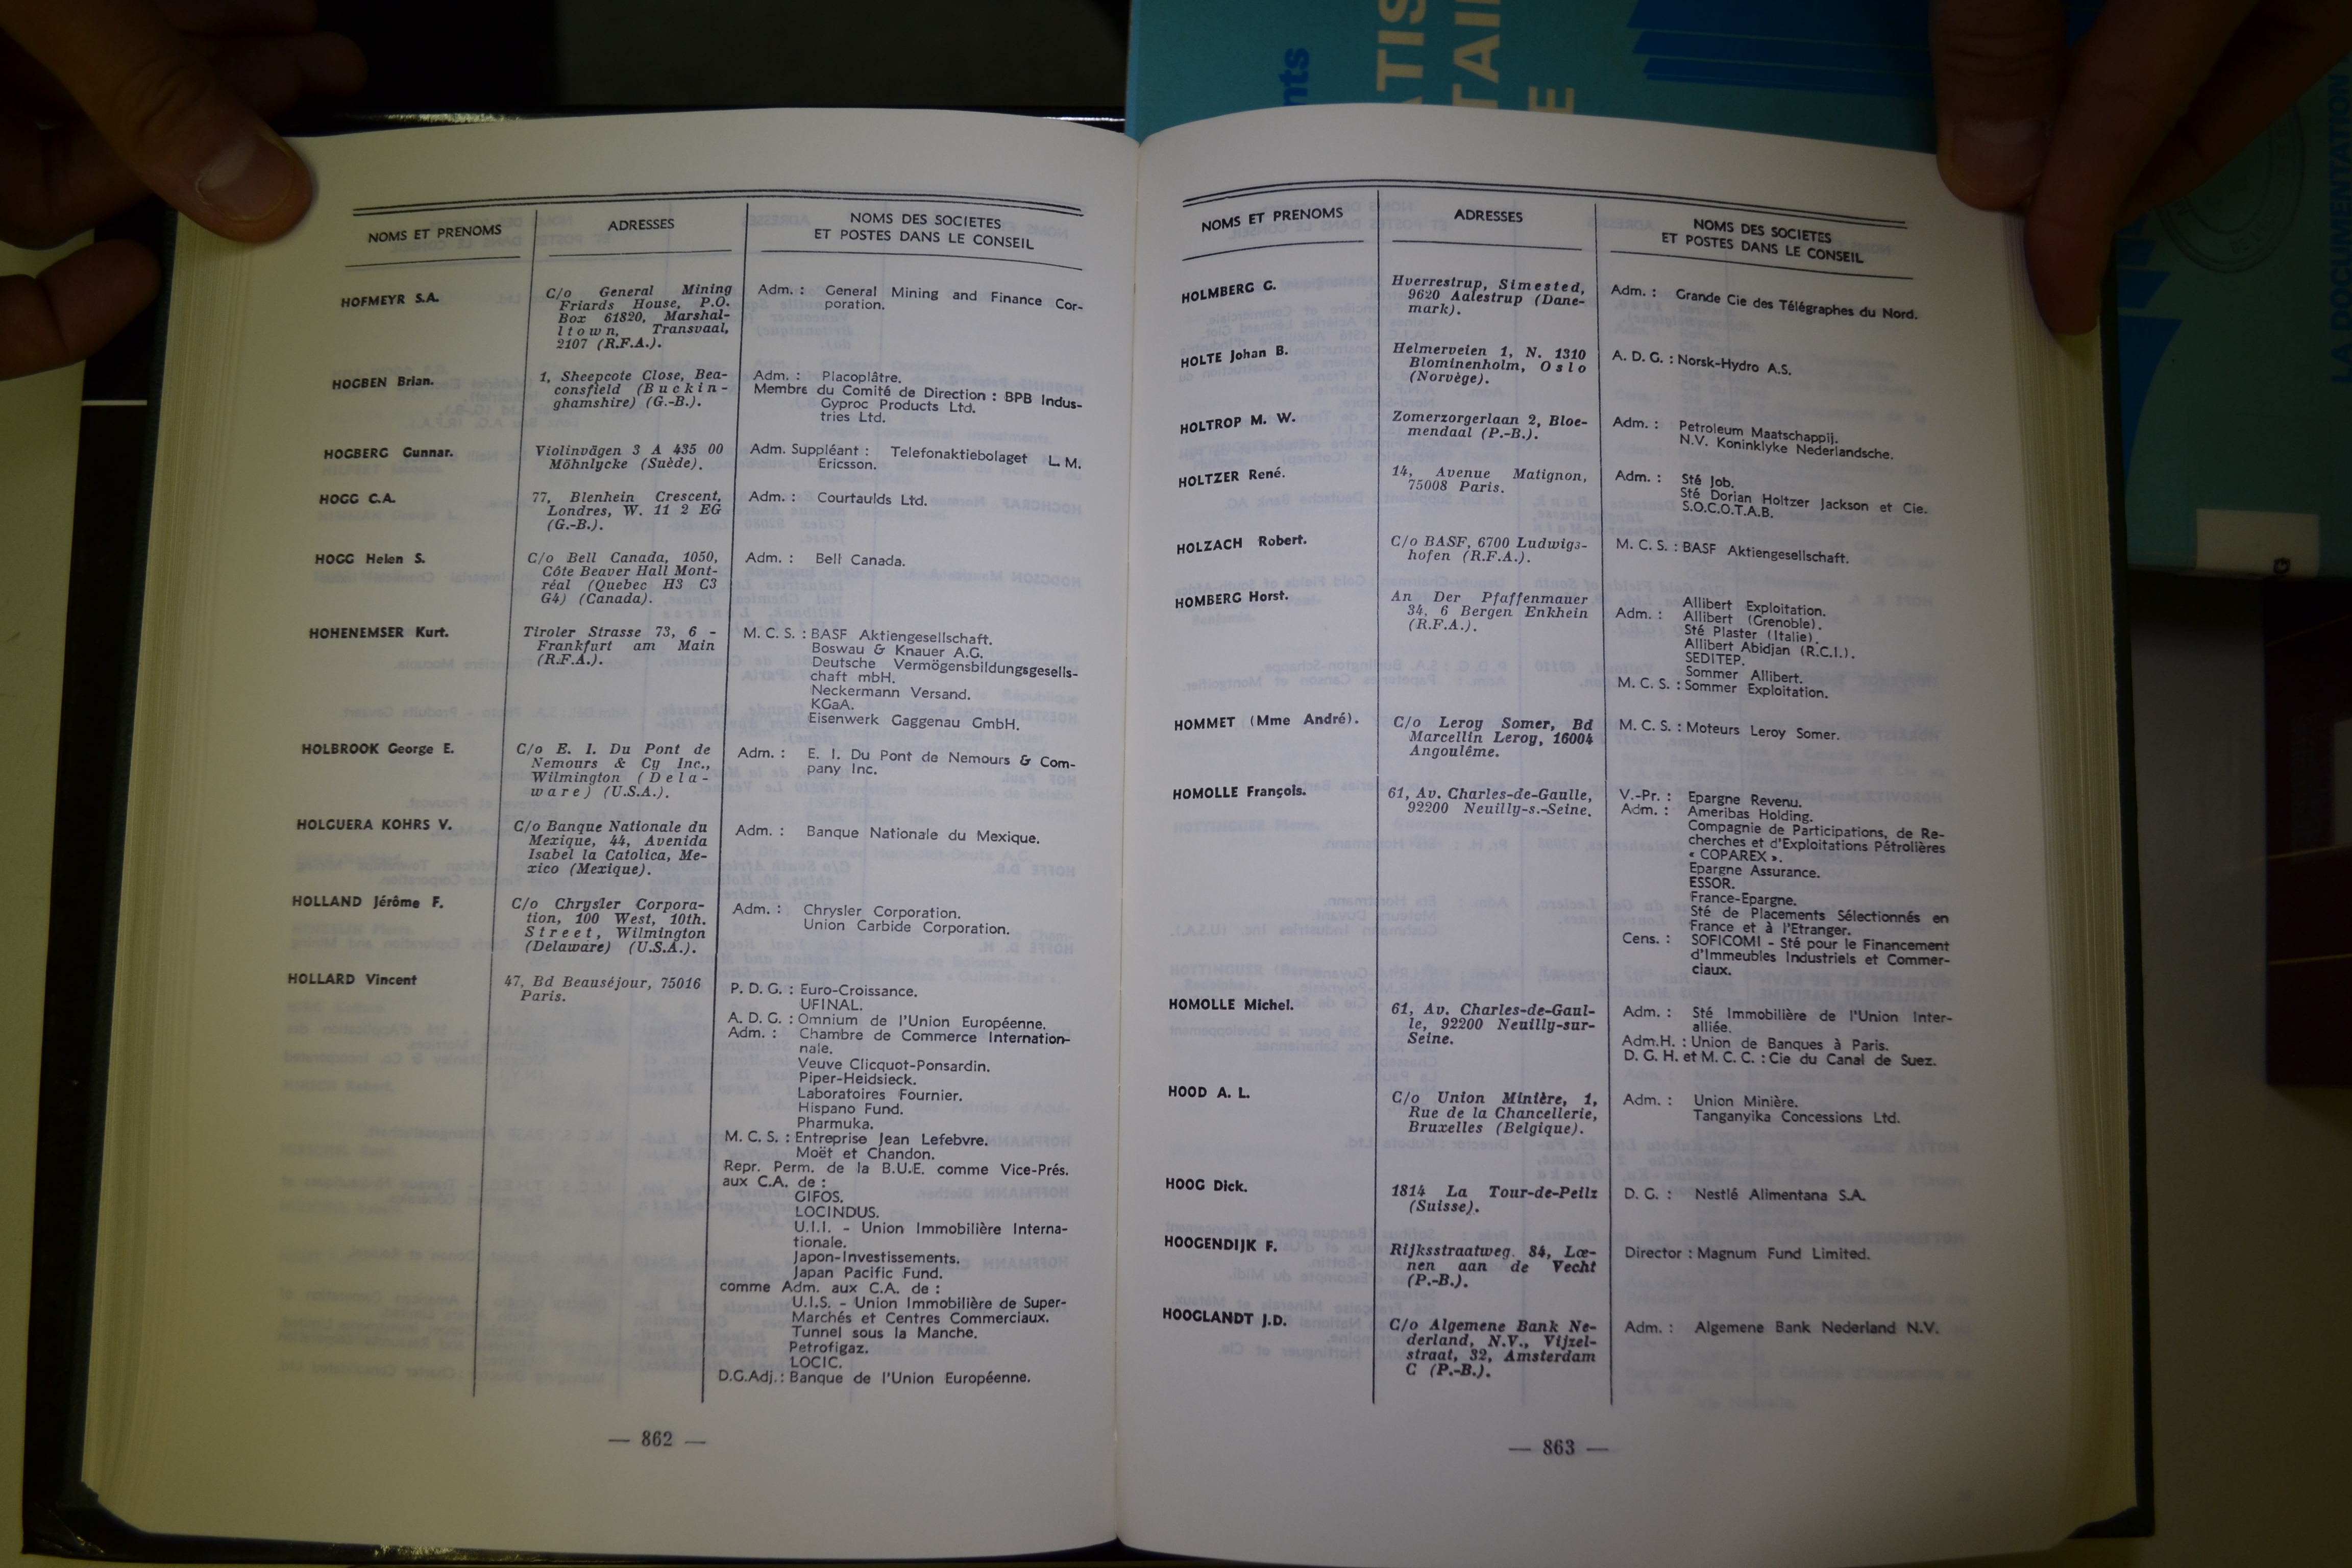 nts
ATIS
TAI
E
LA DOCUMENTATION
NOMS ET PRENOMS
ADRESSES
NOMS DES SOCIETES
ET POSTES DANS LE CONSEIL
HOFMEYR S.A.
C/o General Mining
Friards House, P.O.
Box 61820, Marshal-
ltown, Transvaal,
2107 (R.F.A.).
Adm. : General Mining and Finance Cor-
poration.
HOGBEN Brian.
1, Sheepcote Close, Bea-
consfield (Buckin-
ghamshire) (G.-B.).
Adm. : Placoplâtre.
Membre du Comité de Direction : BPB Indus-
Gyproc Products Ltd.
tries Ltd.
HOGBERG Gunnar.
Violinvägen 3 A 435 00
Möhnlycke (Suède).
Adm. Suppléant : Telefonaktiebolaget L.M.
Ericsson.
HOGG C.A.
77, Blenhein Crescent,
Londres, W. 11 2 EG
(G.-B.).
Adm. : Courtaulds Ltd.
HOGG Helen S.
C/o Bell Canada, 1050,
Côte Beaver Hall Mont-
réal (Quebec H3 C3
G4) (Canada).
Adm. : Bell Canada.
HOHENEMSER Kurt.
Tiroler Strasse 73, 6 -
Frankfurt am Main
(R.F.A.).
M. C. S. : BASF Aktiengesellschaft.
Boswau & Knauer A.G.
Deutsche Vermögensbildungsgesells-
chaft mbH.
Neckermann Versand.
KGaA.
Eisenwerk Gaggenau GmbH.
HOLBROOK George E.
C/o E. I. Du Pont de
Nemours & Cy Inc.,
Wilmington (Dela-
ware) (U.S.A.).
Adm. : E. I. Du Pont de Nemours & Com-
pany Inc.
HOLGUERA KOHRS V.
C/o Banque Nationale du
Mexique, 44, Avenida
Isabel la Catolica, Me-
xico (Mexique).
Adm. : Banque Nationale du Mexique.
HOLLAND Jérôme F.
C/o Chrysler Corpora-
tion, 100 West, 10th.
Street, Wilmington
(Delaware) (U.S.A.).
Adm. : Chrysler Corporation.
Union Carbide Corporation.
HOLLARD Vincent
47, Bd Beauséjour, 75016
Paris.
P. D. G. : Euro-Croissance.
UFINAL.
A. D. G. : Omnium de l'Union Européenne.
Adm. : Chambre de Commerce Internation-
nale.
Veuve Clicquot-Ponsardin.
Piper-Heidsieck.
Laboratoires Fournier.
Hispano Fund.
Pharmuka.
M. C. S. : Entreprise Jean Lefebvre.
Moët et Chandon.
Repr. Perm. de la B.U.E. comme Vice-Prés.
aux C.A. de :
GIFOS.
LOCINDUS.
U.I.I. - Union Immobilière Interna-
tionale.
Japon-Investissements.
Japan Pacific Fund.
comme Adm. aux C.A. de :
U.I.S. - Union Immobilière de Super-
Marchés et Centres Commerciaux.
Tunnel sous la Manche.
Petrofigaz.
LOCIC.
D.G.Adj. : Banque de l'Union Européenne.
— 862 —
NOMS ET PRENOMS
ADRESSES
NOMS DES SOCIETES
ET POSTES DANS LE CONSEIL
HOLMBERG G.
Hverrestrup, Simested,
9620 Aalestrup (Dane-
mark).
Adm. : Grande Cie des Télégraphes du Nord.
HOLTE Johan B.
Helmerveien 1, N. 1310
Blominenholm, Oslo
(Norvège).
A. D. G. : Norsk-Hydro A.S.
HOLTROP M. W.
Zomerzorgerlaan 2, Bloe-
mendaal (P.-B.).
Adm. : Petroleum Maatschappij.
N.V. Koninklyke Nederlandsche.
HOLTZER René.
14, Avenue Matignon,
75008 Paris.
Adm. : Sté Job.
Sté Dorian Holtzer Jackson et Cie.
S.O.C.O.T.A.B.
HOLZACH Robert.
C/o BASF, 6700 Ludwigs-
hofen (R.F.A.).
M. C. S. : BASF Aktiengesellschaft.
HOMBERG Horst.
An Der Pfaffenmauer
34, 6 Bergen Enkhein
(R.F.A.).
Allibert Exploitation.
Adm. : Allibert (Grenoble).
Sté Plaster (Italie).
Allibert Abidjan (R.C.I.).
SEDITEP.
Sommer Allibert.
M. C. S. : Sommer Exploitation.
HOMMET (Mme André).
C/o Leroy Somer, Bd
Marcellin Leroy, 16004
Angoulême.
M. C. S. : Moteurs Leroy Somer.
HOMOLLE François.
61, Av. Charles-de-Gaulle,
92200 Neuilly-s.-Seine.
V.-Pr. : Epargne Revenu.
Adm. : Ameribas Holding.
Compagnie de Participations, de Re-
cherches et d'Exploitations Pétrolières
« COPAREX ».
Epargne Assurance.
ESSOR.
France-Epargne.
Sté de Placements Sélectionnés en
France et à l'Etranger.
Cens. : SOFICOMI - Sté pour le Financement
d'Immeubles Industriels et Commer-
ciaux.
HOMOLLE Michel.
61, Av. Charles-de-Gaul-
le, 92200 Neuilly-sur-
Seine.
Adm. : Sté Immobilière de l'Union Inter-
alliée.
Adm.H. : Union de Banques à Paris.
D. G. H. et M. C. C. : Cie du Canal de Suez.
HOOD A. L.
C/o Union Minière, 1,
Rue de la Chancellerie,
Bruxelles (Belgique).
Adm. : Union Minière.
Tanganyika Concessions Ltd.
HOOG Dick.
1814 La Tour-de-Peilz
(Suisse).
D. G. : Nestlé Alimentana S.A.
HOOGENDIJK F.
Rijksstraatweg. 84, Lœ-
nen aan de Vecht
(P.-B.).
Director : Magnum Fund Limited.
HOOGLANDT J.D.
C/o Algemene Bank Ne-
derland, N.V., Vijzel-
straat, 32, Amsterdam
C (P.-B.).
Adm. : Algemene Bank Nederland N.V.
— 863 —